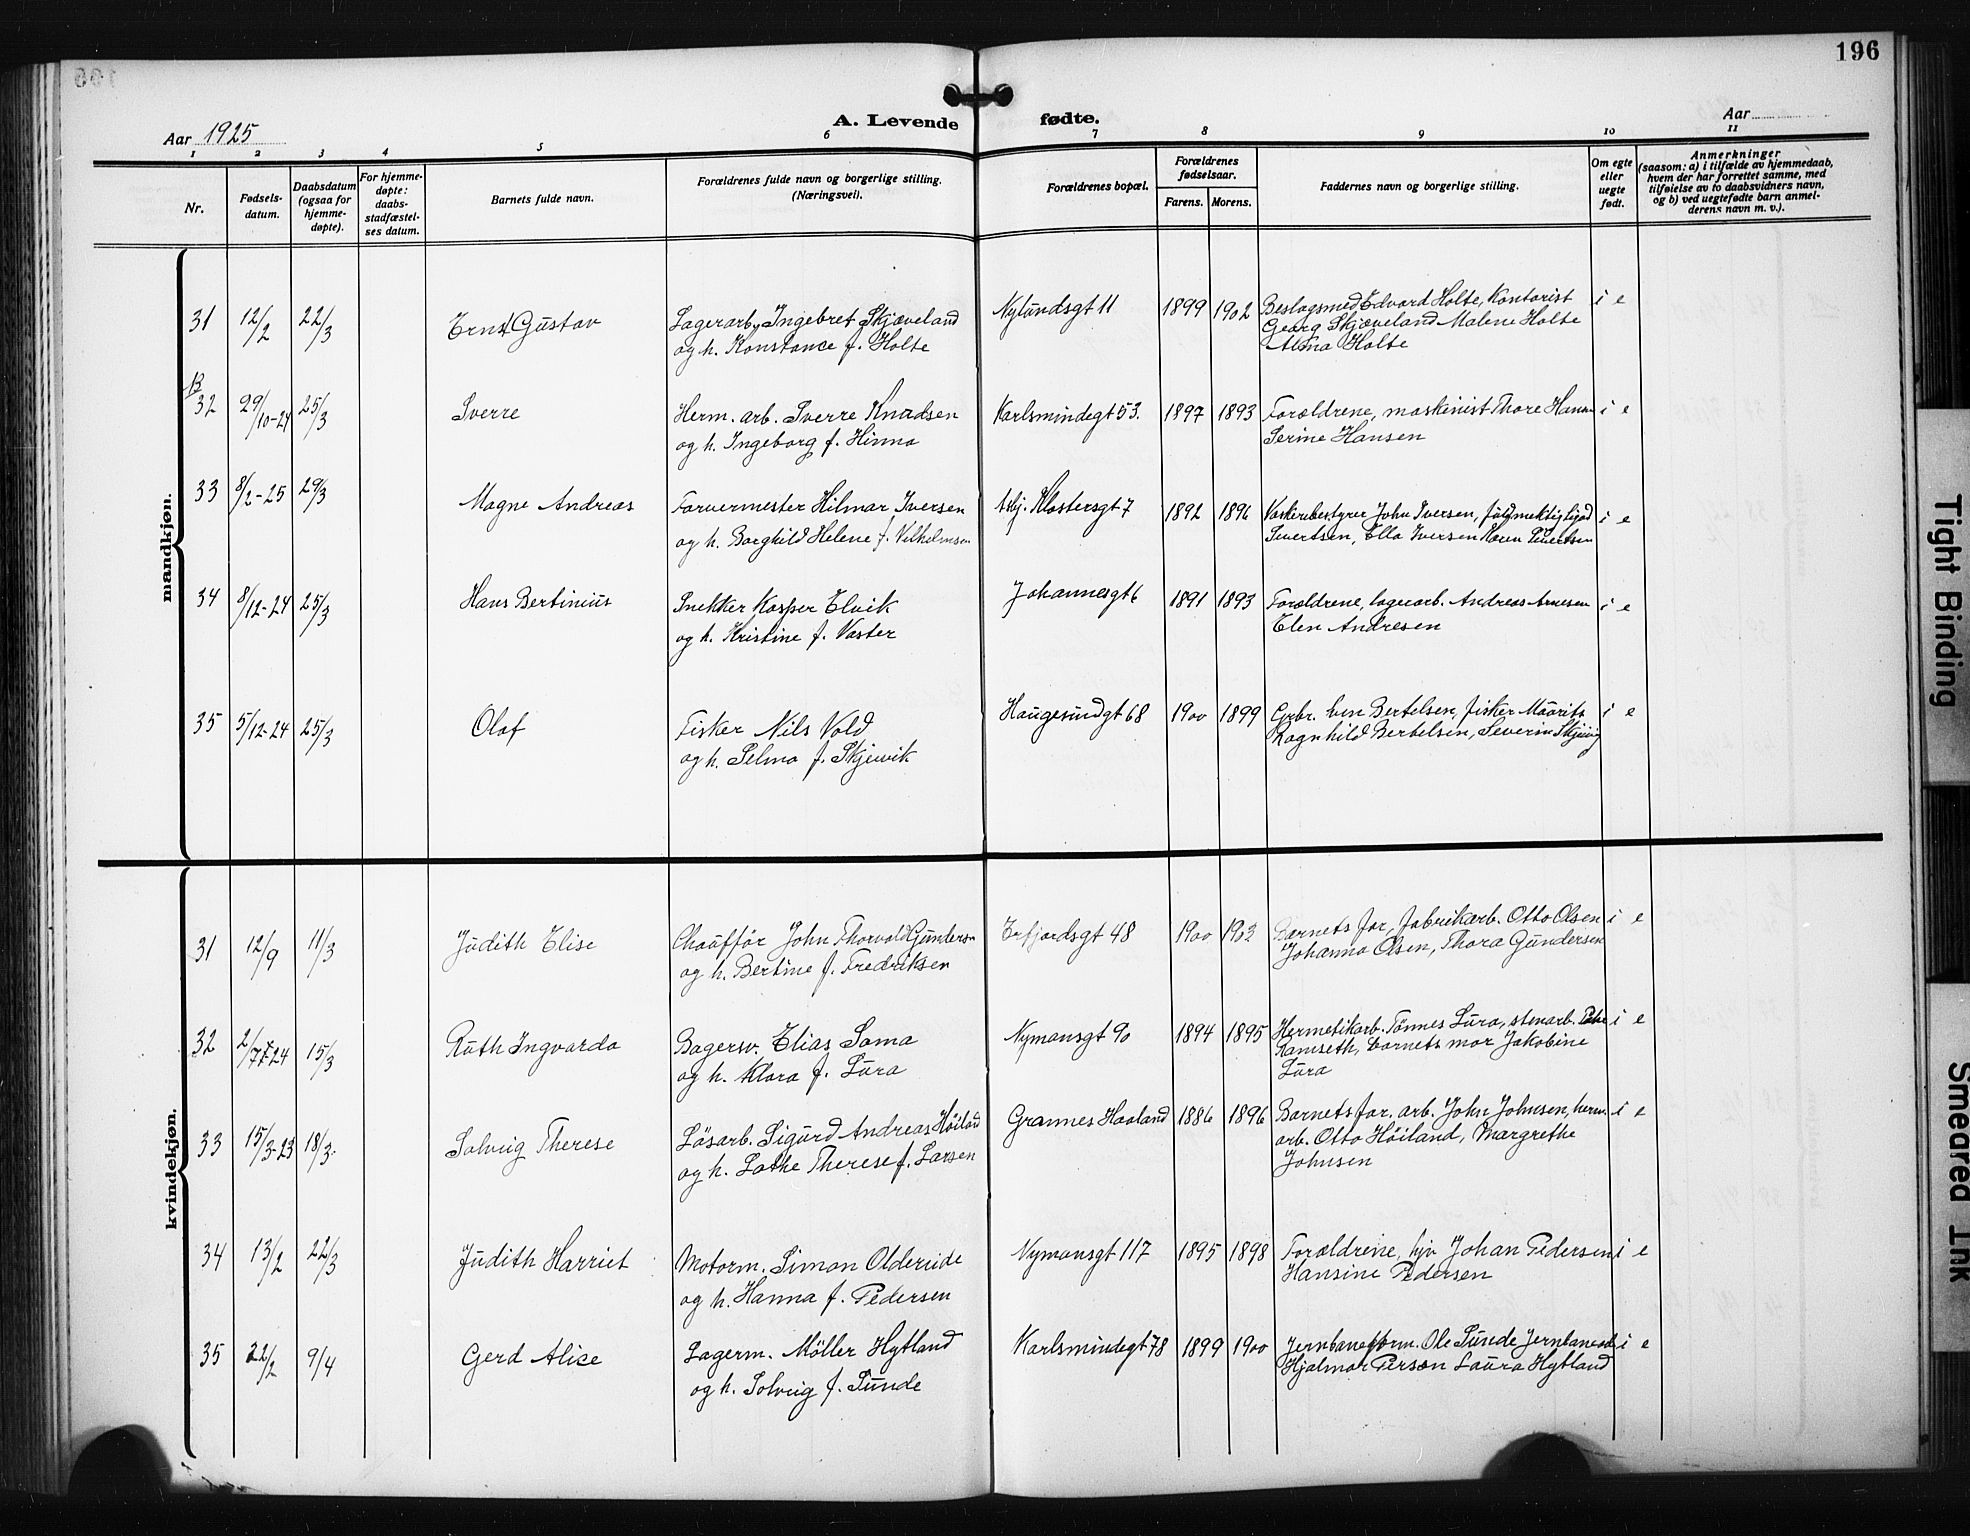 196
Aar 1925
A. Levende fødte.
Aar
1 2 3 4 5 6 7 8 9 10 11
Nr.
Fødsels-
datum.
Daabsdatum
(ogsaa for
hjemme-
døpte).
For hjemme-
døpte:
daabs-
stadfæstel-
ses datum.
Barnets fulde navn.
Forældrenes fulde navn og borgerlige stilling.
(Næringsvei).
Forældrenes bopæl.
Forældrenes
fødselsaar.
Farens. Morens.
Faddernes navn og borgerlige stilling.
Om egte
eller
uegte
født.
Anmerkninger
(saasom: a) i tilfælde av hjemmedaab,
hvem der har forrettet samme, med
tilføielse av to daabsvidners navn,
og b) ved uegtefødte barn anmel-
derens navn m. v.).
mandkjøn.
31 12/2 22/3 Ernst Gustav Lagerarb. Ingebret Skjæveland Nylundsgt 11 1899 1902 Beslagsmed Edvard Holte, Kontorist i e
og h. Konstance f. Holte Georg Skjæveland Malene Holte
Alma Holte
32 29/10-24 25/3 Sverre Herm. arb. Sverre Knudsen Karlsmindegt 53. 1897 1893 Forældrene, maskinist Thore Hansen i e
og h. Ingeborg f. Hinna Serine Hansen
33 8/2-25 29/3 Magne Andreas Farvermester Hilmar Iversen Klostersgt 7 1892 1896 Vaskeribestyrer John Iversen, i e
og h. Borghild Helene f. Vilhelmsen Sivertsen, Ella Iversen Karen Sivertsen
34 8/12-24 25/3 Hans Bertinius Snekker Kasper Elvik Johannesgt 6 1891 1893 Forældrene, lagerarb. Andreas Arnesen i e
og h. Kristine f. Vaster Elen Andresen
35 5/12-24 25/3 Olaf Fisker Nils Vold Haugesundgt 68 1900 1899 Grbr. Bertelsen, fisker Maurits i e
og h. Selma f. Skjeivik Ragnhild Bertelsen, Severin
kvindekjøn.
31 12/9 11/3 Judith Elise Chauffør John Thorvald Gundersen Erfjordsgt 48 1900 1903 Barnets far, fabrikarb. Otto Olsen i e
og h. Bertine f. Fredriksen Johanna Olsen, Thora Gundersen
32 15/3 Ruth Ingvarda Bagersv. Elias Soma Nymansgt 90 1894 1895 Hermetikarb. Tønnes Lura, stenarb. i e
og h. Klara f. Lura Ramseth, barnets mor Jakobine
Lura
33 15/3-23 18/3 Solveig Therese Løsarb. Sigurd Andreas Høiland Grannes Haaland 1886 1896 Barnets far, arb. John Johnsen, herm. i e
og h. Lathe Therese f. Larsen arb. Otto Høiland, Margrethe
Johnsen
34 13/2 22/3 Judith Harriet Motorm. Simon Oldereide Nymansgt 117 1895 1898 Forældrene, Johan Pedersen i e
og h. Hanna f. Pedersen Hansine Pedersen
35 22/2 9/4 Gerd Alice Lagerm. Møller Hytland Karlsmindegt 78 1899 1900 Jernbaneform. Ole Sunde Jernbanearb. i e
og h. Solveig f. Sunde Hjalmar Person Laura Hytland
Tight Binding
Smeared Ink